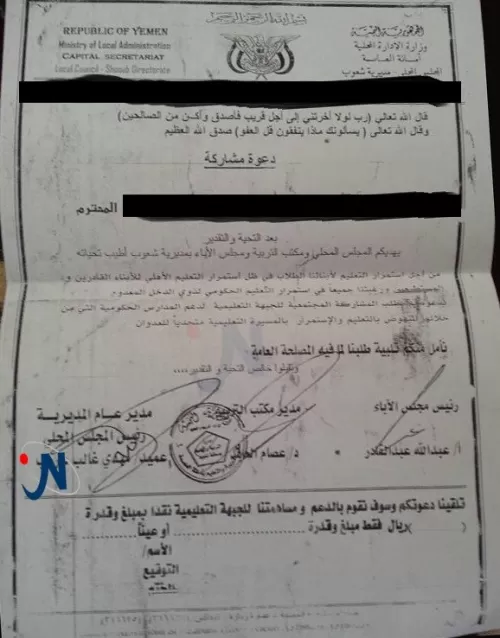 بسم الله الرحمن الرحيم
REPUBLIC OF YEMEN
Ministry of Local Administration
CAPITAL SECRETARIAT
Local Council - Shuoub Directorate
الجمهورية اليمنية
وزارة الإدارة المحلية
أمانة العاصمة
المجلس المحلي مديرية شعوب
قال الله تعالى (رب لولا أخرتني إلى أجل قريب فأصدق وأكن من الصالحين)
وقال الله تعالى ( يسألونك ماذا ينفقون قل العفو) صدق الله العظيم
دعوة مشاركة
المحترم
بعد التحية والتقدير
يهديكم المجلس المحلي ومكتب التربية ومجلس الأباء بمديرية شعوب أطيب تحياته
من أجل استمرار التعليم لأبنائنا الطلاب في ظل استمرار التعليم الأهلي للأبناء القادرين و
ورغبتنا جميعا في استمرار التعليم الحكومي لذوي الدخل المعدوم
بطلب المشاركة المجتمعية للجبهة التعليمية لدعم المدارس الحكومية التي من
خلالها للنهوض بالتعليم والإستمرار بالمسيرة التعليمية متحدياً للعدوان
نأمل منكم تلبية طلبنا لما فيه المصلحة العامة
وتقبلوا خالص التحية و التقدير،،،،
رئيس مجلس الأباء
مدير مكتب التربية
مدير عام المديرية
رئيس المجلس المحلي
أ/ عبدالله عبدالقادر
د/ عصام
عميد/ مهدي غالب
iN
تلقينا دعوتكم وسوف نقوم بالدعم و مساهمتنا للجبهة التعليمية نقدا بمبلغ وقدرة
( )ريال فقط مبلغ وقدرة .................... أو عيناً....................
الأسم/
التوقيع